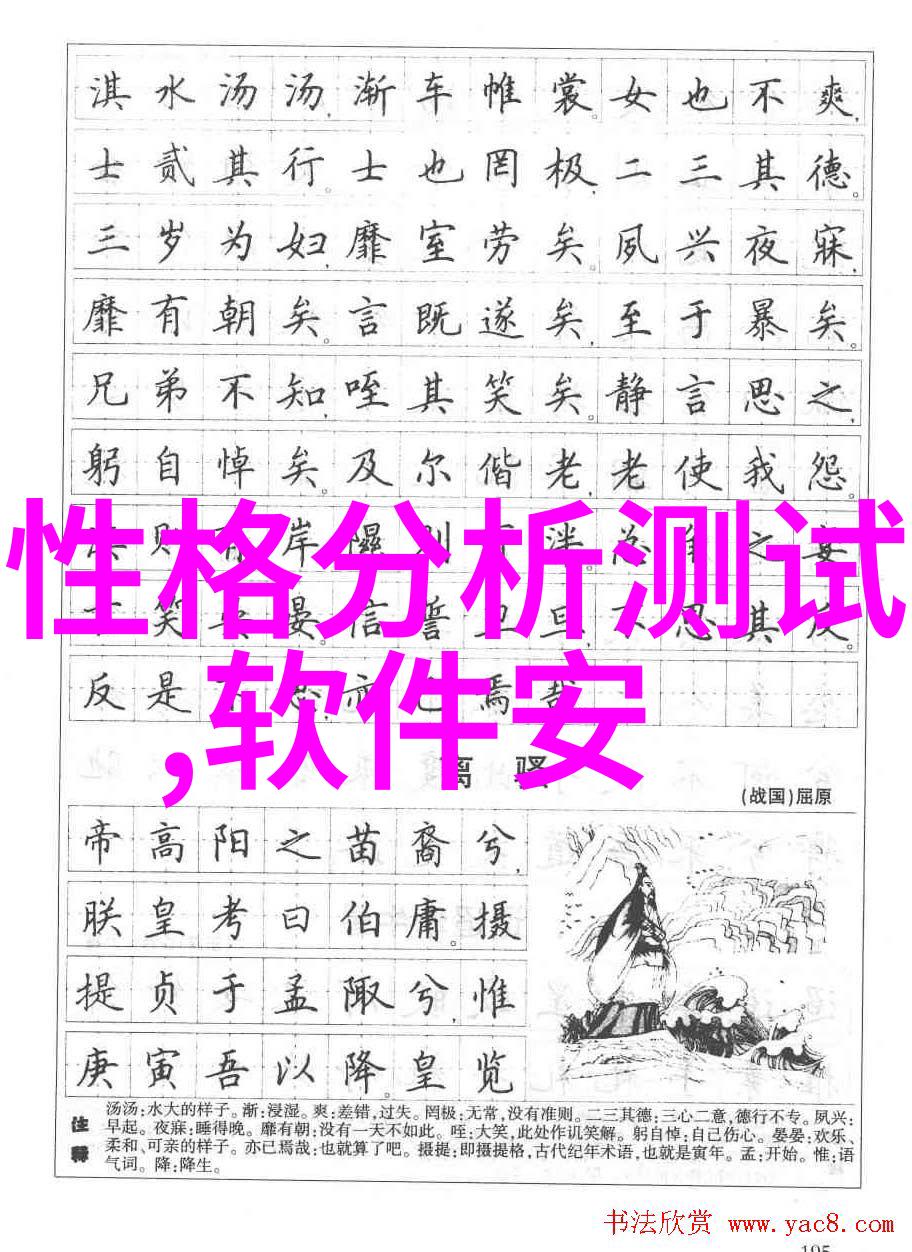 淇水汤汤,渐车帷裳。女也不爽,
士贰其行。士也罔极,二三其德。
三岁为妇,靡室劳矣。夙兴夜寐,
靡有朝矣。言既遂矣,至于暴矣。
兄弟不知,咥其笑矣。静言思之,
躬自悼矣。及尔偕老,老使我怨。
则岸隰则泮。之宴
性格分析测试
笑晏。信誓旦旦,不思其反。
反是焉哉
,软件安
离骚
(战国)屈原
帝高阳之苗裔兮,
朕皇考曰伯庸。摄
提贞于孟陬兮,惟
庚寅吾以降。皇览
注释
汤汤:水大的样子。渐:浸湿。爽:差错,过失。罔极:无常,没有准则。二三其德:三心二意,德行不专。夙兴:
早起。夜寐:睡得晚。靡有朝:没有一天不如此。咥:大笑,此处作讥笑解。躬自悼:自己伤心。晏晏:欢乐、
柔和、可亲的样子。亦已焉哉:也就算了吧。摄提:即摄提格,古代纪年术语,也就是寅年。孟:开始。惟:语
气词。降:降生。
书法欣赏 www.yac8.com